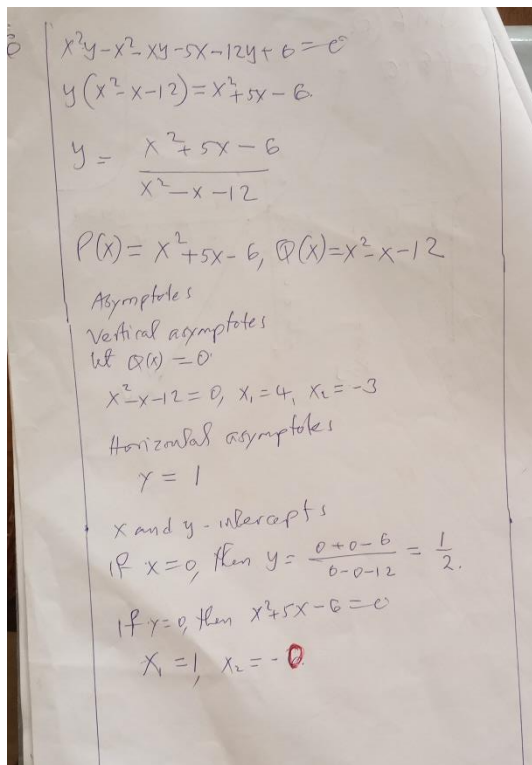 x²y-x²-xy-5x-12y+6=0
y(x²-x-12)=x²+5x-6.
y = x²+5x-6 / x²-x-12
P(x)= x²+5x-6, Q(x)=x²-x-12
Asymptotes
Vertical asymptotes
let Q(x) =0
x²-x-12=0, x₁=4, x₂=-3
Horizontal asymptotes
y = 1
x and y-intercepts
If x=0, then y= 0+0-6 / 0-0-12 = 1/2.
If y=0, then x²+5x-6=0
x₁=1, x₂=-